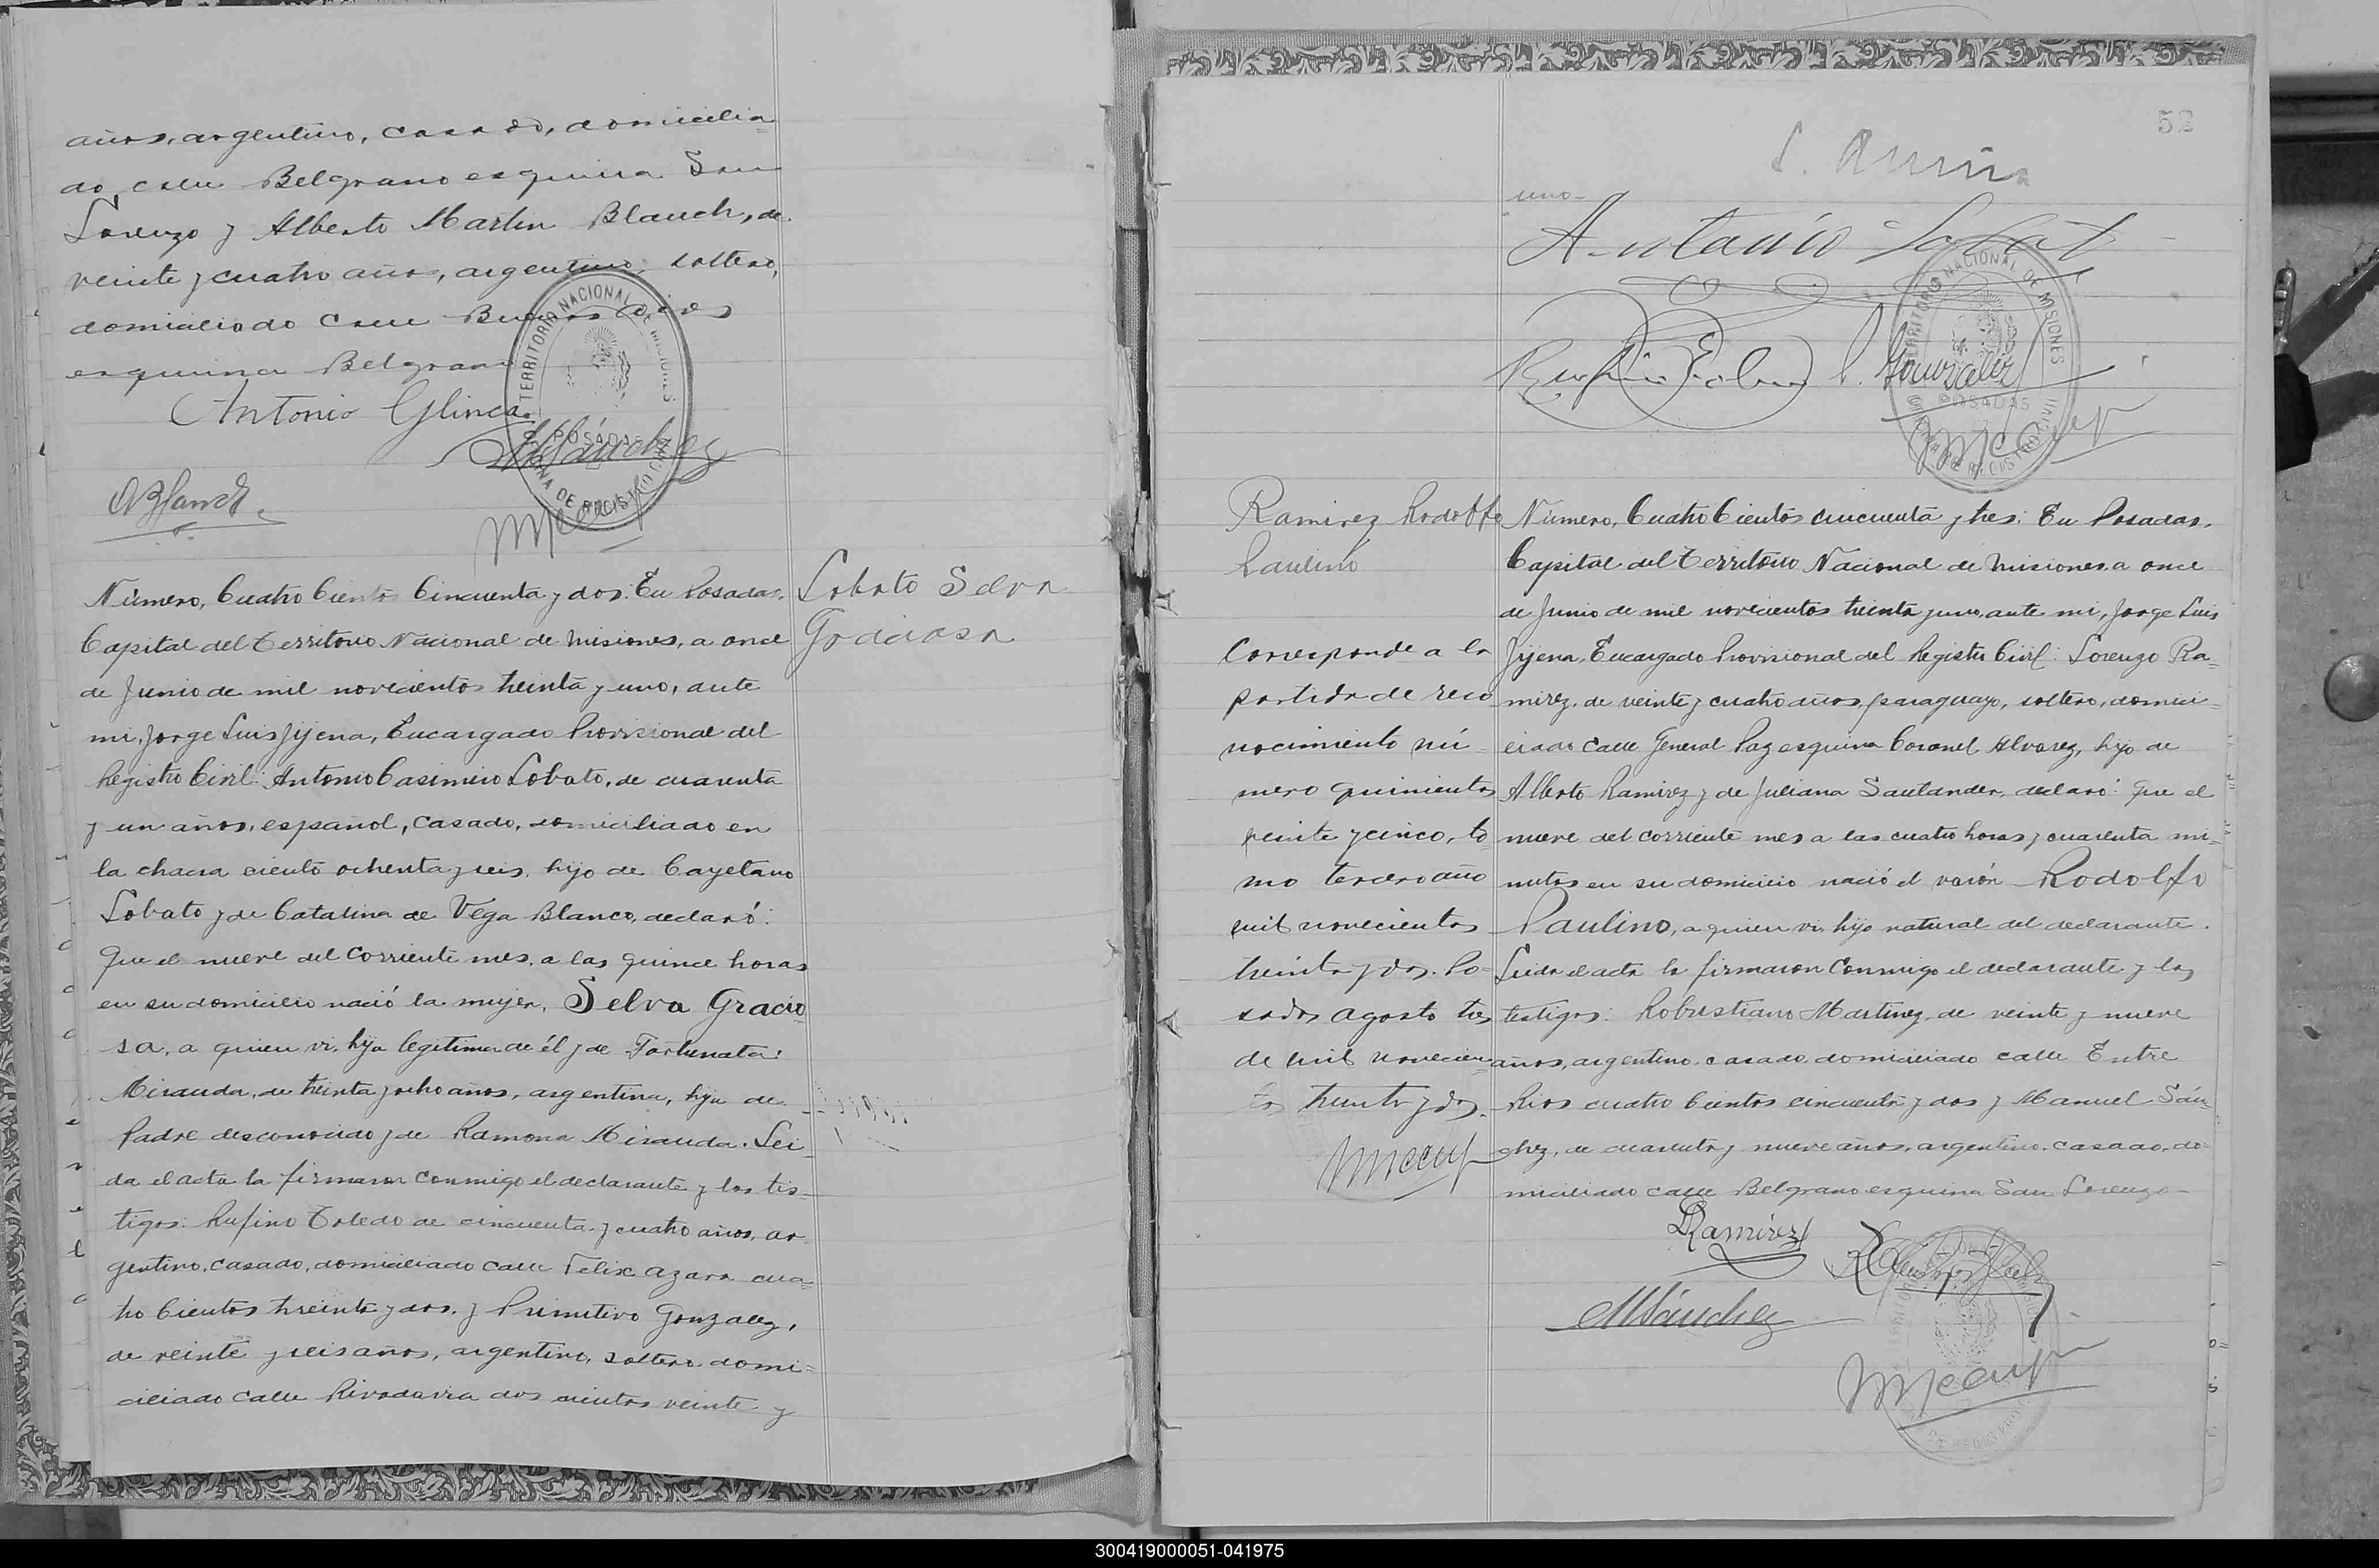 años, argentino, casado, domicilia=
do calle Belgrano esquina San
Lorenzo y Alberto Martin Blanch, de
veinte y cuatro años, argentino, soltero,
domiciliado calle Buenos Aires
esquina Belgrano
Antonio Glinca
MSánchez
ABlanch
TERRITORIO NACIONAL DE MISIONES
POSADAS
OFICINA DE REGISTRO CIVIL
Lobato Selva
Graciosa
Número, Cuatro Cientos Cincuenta y dos: En Posadas,
Capital del Territorio Nacional de Misiones, a once
de Junio de mil novecientos treinta y uno, ante
mi, Jorge Luis Jijena, Encargado Provisional del
Registro Civil: Antonio Casimiro Lobato, de cuarenta
y un años, español, casado, domiciliado en
la chacra ciento ochenta y seis, hijo de Cayetano
Lobato y de Catalina de Vega Blanco, declaró:
Que el nueve del corriente mes, a las quince horas
en su domicilio nació la mujer, Selva Gracio=
sa, a quien vi, hija legitima de él y de Fortunata
Miranda, de treinta y ocho años, argentina, hija de
Padre desconocido y de Ramona Miranda. Lei=
da el acta la firmaron conmigo el declarante y los tes=
tigos: Rufino Toledo de cincuenta y cuatro años, ar
gentino, casado, domiciliado calle Felix Azara cua=
tro Cientos treinta y dos, y Primitivo Gonzalez,
de veinte y seis años, argentino, soltero, domi=
ciliado calle Rivadavia dos cientos veinte y
52
uno-
Antonio Lobato
Rufino Toledo P. Gonzalez
TERRITORIO NACIONAL DE MISIONES
POSADAS
OFICINA DE REGISTRO CIVIL
Ramirez Rodolfo
Paulino
Corresponde a la
partida de reco
nocimiento nú-
mero quinientos
veinte y cinco, to
mo tercero año
mil novecientos
treinta y dos. Po=
sadas Agosto tres
de mil novecien=
tos treinta y dos.
Número, Cuatro Cientos cincuenta y tres: En Posadas,
Capital del Territorio Nacional de Misiones a once
de Junio de mil novecientos treinta y uno, ante mi, Jorge Luis
Jijena, Encargado Provisional del Registro Civil: Lorenzo Ra=
mirez, de veinte y cuatro años, paraguayo, soltero, domici=
liado calle General Paz esquina Coronel Alvarez, hijo de
Alberto Ramirez y de Juliana Santander, declaró: Que el
nueve del corriente mes a las cuatro horas y cuarenta mi=
nutos en su domicilio nació el varón Rodolfo
Paulino, a quien vi, hijo natural del declarante.
Leida el acta la firmaron conmigo el declarante y los
testigos: Robustiano Martinez, de veinte y nueve
años, argentino, casado, domiciliado calle Entre
Rios cuatro Cientos cincuenta y dos y Manuel Sán=
chez, de cuarenta y nueve años, argentino, casado, do=
miciliado calle Belgrano esquina San Lorenzo-
LRamírez
MSánchez
300419000051-041975